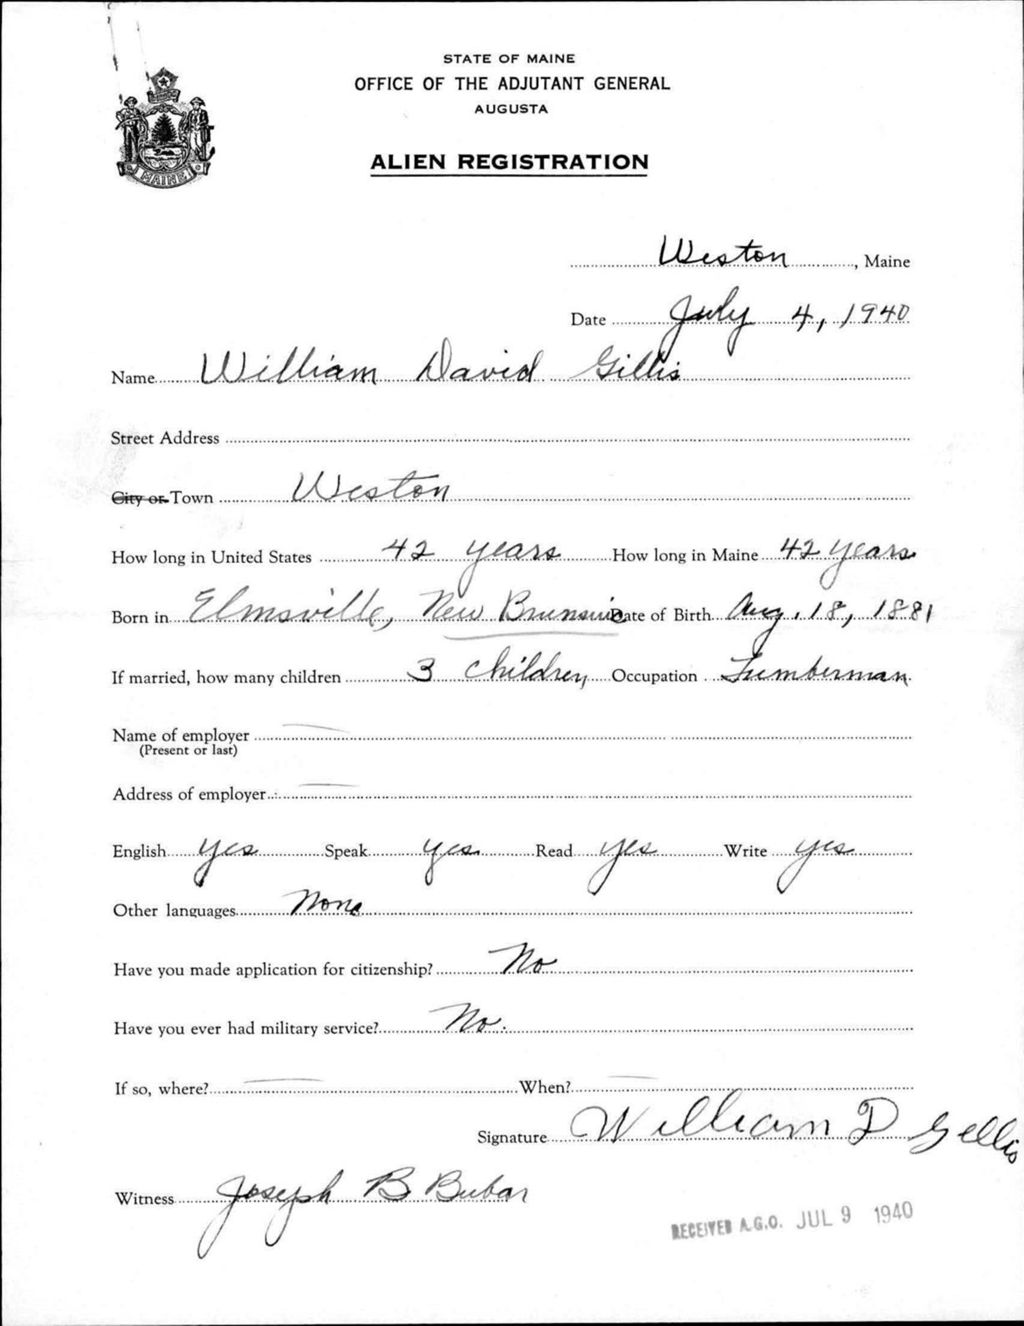 STATE OF MAINE
OFFICE OF THE ADJUTANT GENERAL
AUGUSTA
ALIEN REGISTRATION
MAINE
Weston, Maine
Date July 4, 1940
Name William David Gillis
Street Address
City or Town Weston
How long in United States 42 years How long in Maine 42 years
Born in Elmsville, New Brunswic Date of Birth Aug. 18, 1881
If married, how many children 3 children Occupation Lumberman
Name of employer —
(Present or last)
Address of employer —
English yes Speak yes Read yes Write yes
Other languages None
Have you made application for citizenship? No
Have you ever had military service? No.
If so, where? — When? —
Signature William D Gellis
Witness Joseph B Bubar
RECEIVED A.G.O. JUL 9 1940